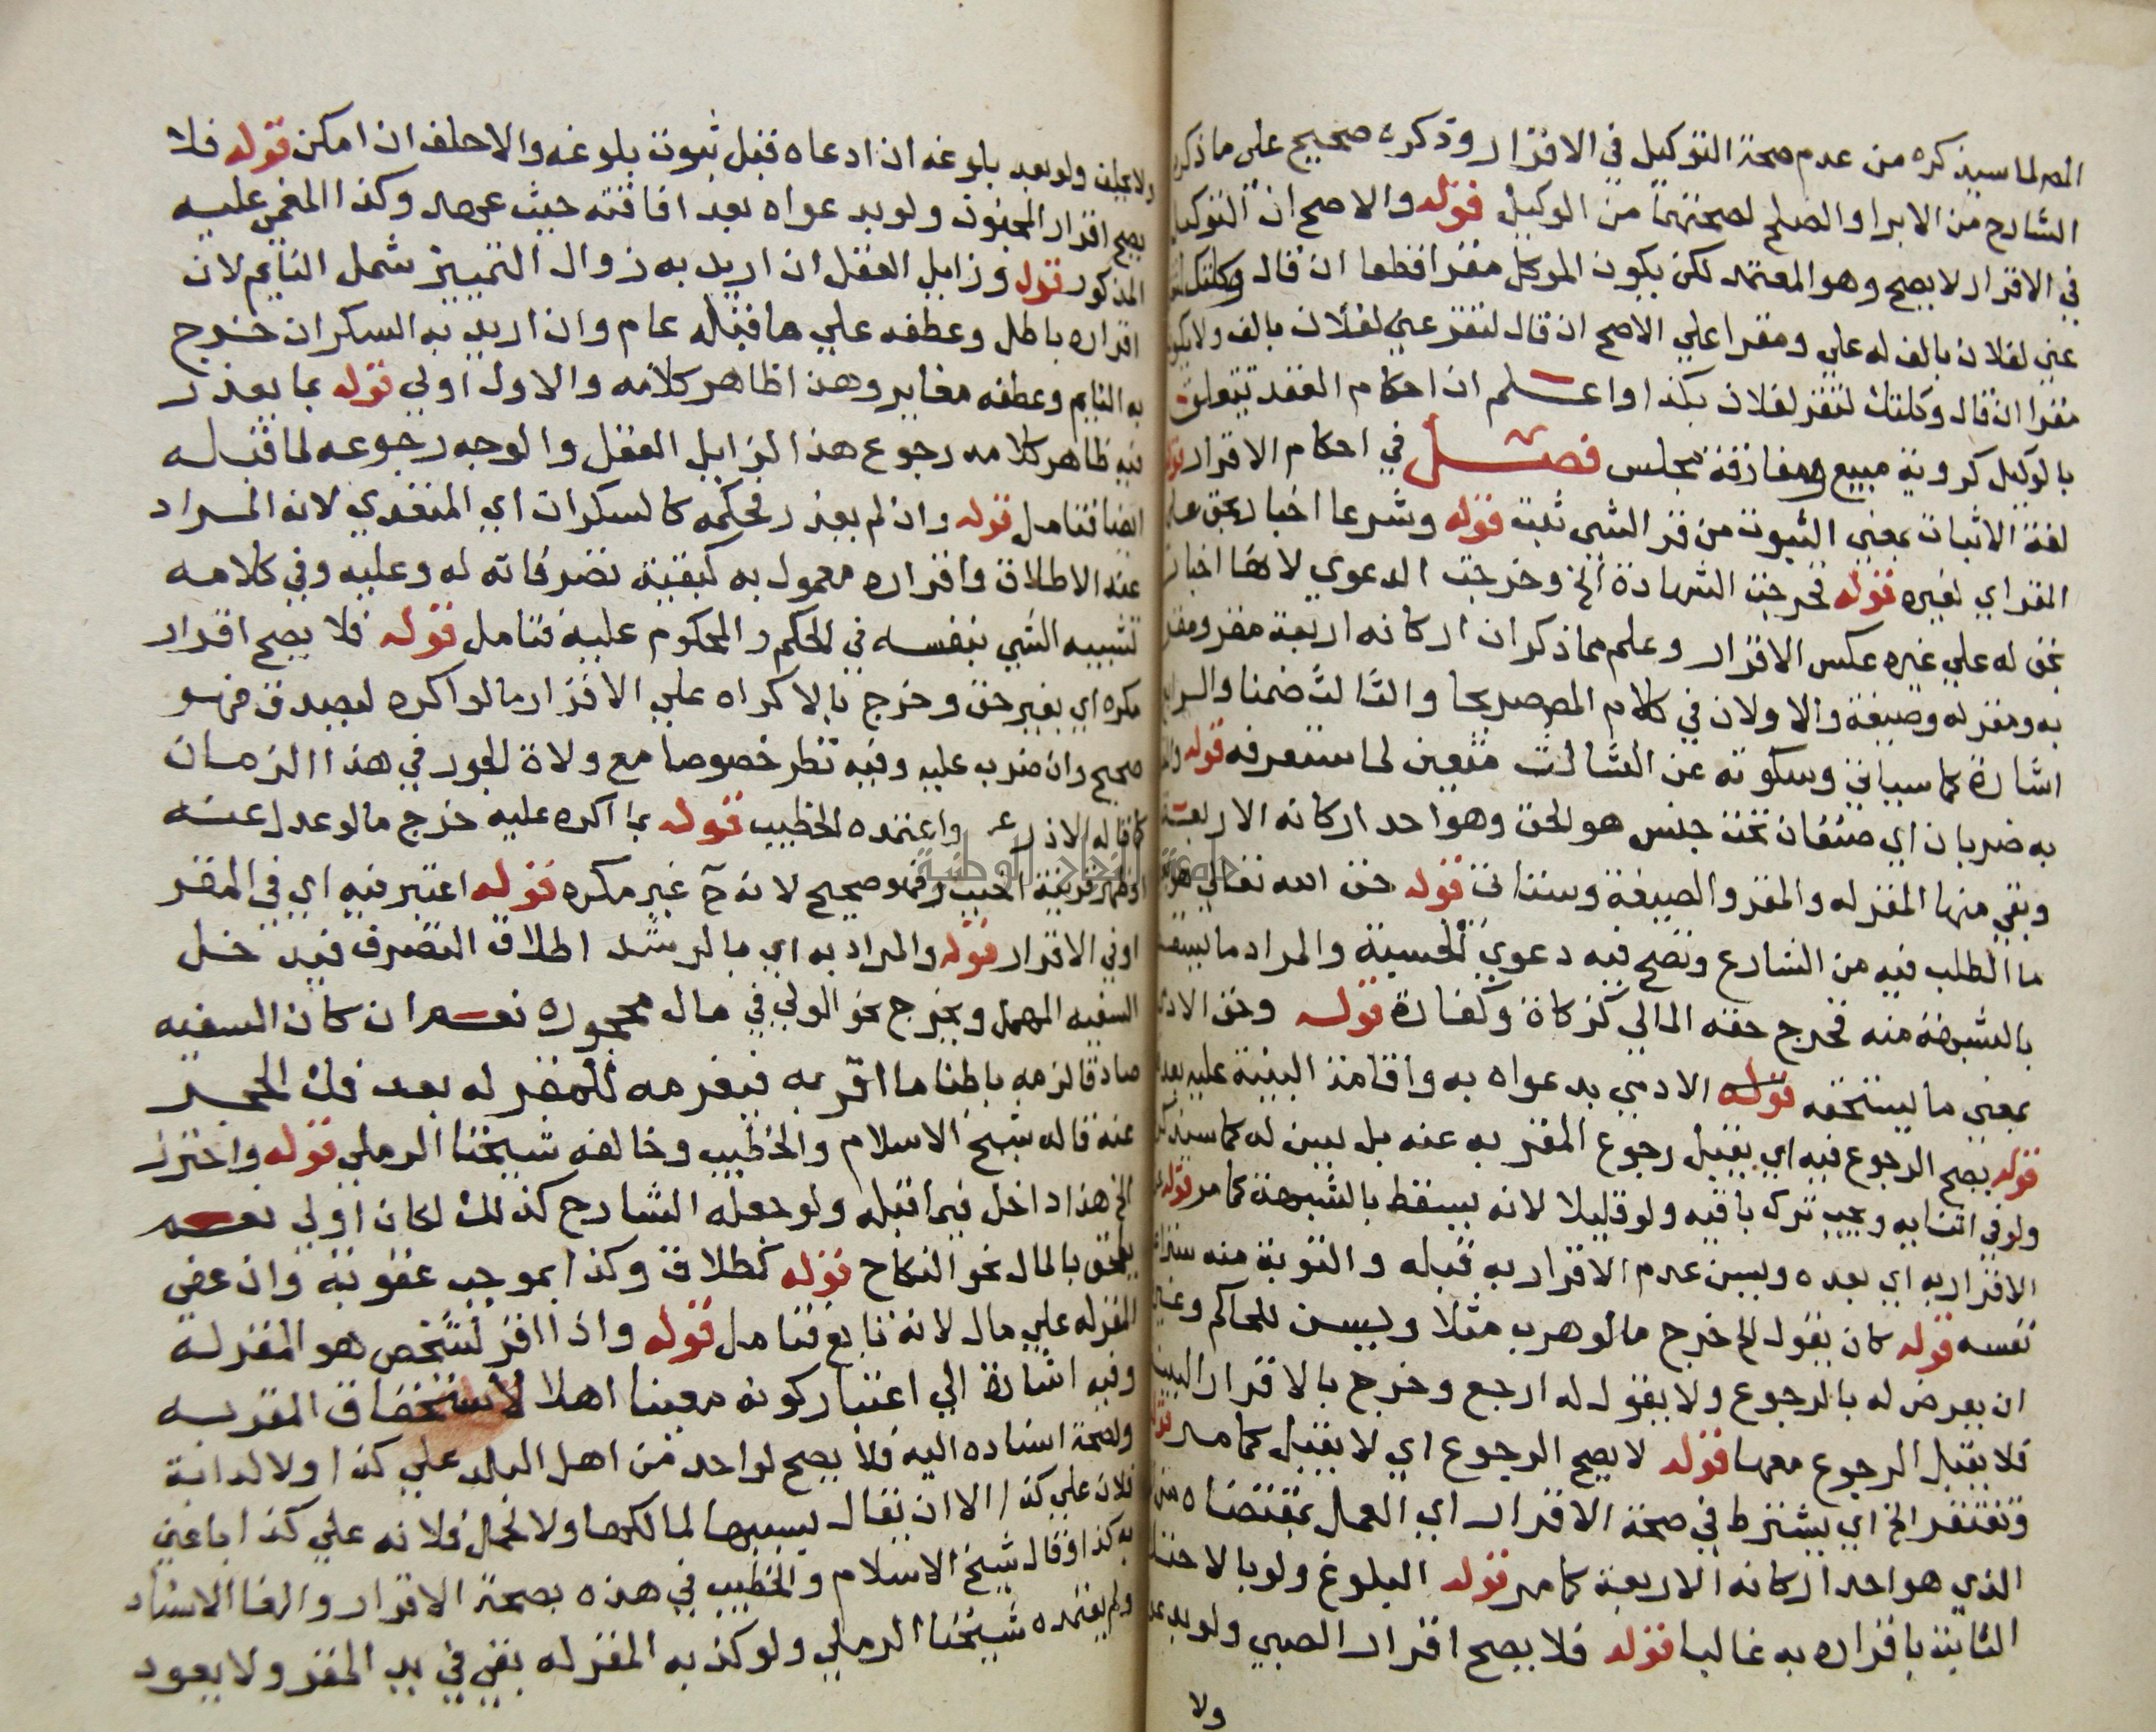 المص لما سيذكره من عدم صحة التوكيل في الاقرار وذكره صحيح على ما ذكره
الشارح من الابرا والصلح لصحتهما من الوكيل قوله والاصح ان التوكيل
في الاقرار لا يصح وهو المعتمد لكن يكون الموكل مقرا قطعا ان قال وكلتك لتقر
عني لفلان بالف له علي ومقرا علي الاصح ان قال لتقر عني لفلان بالف ولا يكون
مقرا ان قال وكلتك لتقر لفلان بكذا واعلم ان احكام العقد تتعلق
بالوكيل كروية مبيع ومفارقة مجلس فصل في احكام الاقرار قوله
لغة الاثبات بمعني الثبوت من قر الشي ثبت قوله وشرعا اخبار بحق علي
المقر اي لغيره قوله فخرجت الشهادة الخ وخرجت الدعوي لانها اخبار
بحق له علي غيره عكس الاقرار وعلم مما ذكر ان اركانه اربعة مقر ومقر
به ومقر له وصيغة والاولان في كلام المص صريحا والثالث ضمنا والرابع
اشارة كما سياتي وسكوته عن الثالث متعين لما ستعرفه قوله
به ضربان اي صنفان تحت جنس هو الحق وهو احد اركانه الاربعة
وبقي منها المقر له والمقر والصيغة وستاتي قوله حق الله تعالي هو
ما الطلب فيه من الشارع وتصح فيه دعوي الحسبة والمراد ما يسقط
بالشبهة منه فخرج حقه المالي كزكاة وكفارة قوله وحق الادمي
بمعني ما يستحقه قوله الادمي بدعواه به واقامة البينة عليه بعد
قوله يصح الرجوع فيه اي يقبل رجوع المقر به عنه بل يسن له كما سيذكره
ولو في اثنايه ويجب ترك باقيه ولو قليلا لانه يسقط بالشبهة كما مر قوله
الاقرار به اي بعده ويسن عدم الاقرار به قبله والتوبة منه سترا علي
نفسه قوله كان يقول الخ خرج ما لو هرب مثلا ويسن للحاكم وغيره
ان يعرض له بالرجوع ولا يقول له ارجع وخرج بالاقرار البينة
فلا يقبل الرجوع معها قوله لا يصح الرجوع اي لا يقبل كما مر قوله
وتفتقر الخ اي يشترط في صحة الاقرار اي العمل بمقتضاه
الذي هو احد اركانه الاربعة كما مر قوله البلوغ ولو بالاحتلام
الثابت باقراره به غالبا قوله فلا يصح اقرار الصبي ولو بدعواه
ولا
ولا يحلف ولو بعد بلوغه ان ادعاه قبل ثبوت بلوغه والا حلف ان امكن قوله فلا
يصح اقرار المجنون ولو بدعواه بعد افاقته حيث عهد وكذا المغمي عليه
المذكور قوله وزايل العقل ان اريد به زوال التمييز شمل النايم لان
اقراره باطل وعطفه علي ما قبله عام وان اريد به السكران خرج
به النايم وعطفه مغاير وهذا ظاهر كلامه والاول اولي قوله بما يعذر
فيه ظاهر كلامه رجوع هذا لزايل العقل والوجه رجوعه لما قبله
ايضا فتامل قوله وان لم يعذر فحكمه كالسكران اي المتعدي لانه المراد
عند الاطلاق واقراره معمول به كبقية تصرفاته له وعليه وفي كلامه
تشبيه الشي بنفسه في الحكم والمحكوم عليه فتامل قوله فلا يصح اقرار
مكره اي بغير حق وخرج بالاكراه علي الاقرار ما لو اكره ليصدق فهو
صحيح وان ضرب عليه وفيه نظر خصوصا مع ولاة الجور في هذا الزمان
كما قاله الاذرعي واعتمده الخطيب قوله بما اكره عليه خرج ما لو عدل عنه
فهو صحيح لانه ح غير مكره قوله اعتبر فيه اي في المقر
او في الاقرار قوله والمراد به اي بالرشد اطلاق التصرف فيدخل
السفيه المهمل ويخرج نحو الولي في مال محجوره نعم ان كان السفيه
صادقا لزمه باطنا ما اقر به فيغرمه للمقر له بعد فك الحجر
عنه قاله شيخ الاسلام والخطيب وخالفه شيخنا الرملي قوله واحترز
الخ هذا داخل فيما قبله ولو جعله الشارح كذلك لكان اولي نعم
يلحق بالمال نحو النكاح قوله كطلاق وكذا بموجب عقوبة وان عفي
المقر له علي مال لانه تابع فتامل قوله واذا اقر لشخص هو المقر له
وفيه اشارة الي اعتبار كونه معينا اهلا لاستحقاق المقر به
ولصحة اسناده اليه فلا يصح لواحد من اهل البلد علي كذا ولا لدابة
فلان علي كذا الا ان يقال بسببها لمالكها ولا لحمل فلانه علي كذا باعني
به كذا وقال شيخ الاسلام والخطيب في هذه بصحة الاقرار والغا الاسناد
ولم يعتمده شيخنا الرملي ولو كذبه المقر له بقي في يد المقر ولا يعود
جامعة النجاح الوطنية